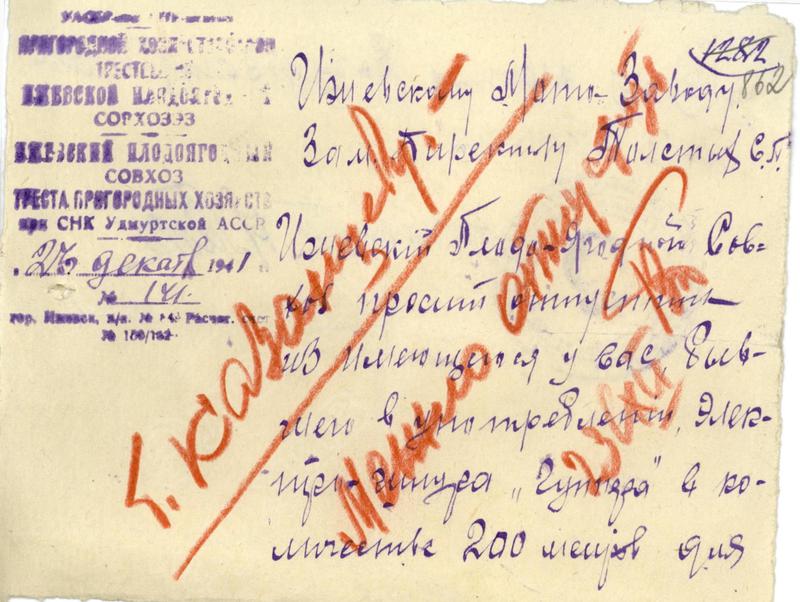 ПРИГОРОДНОЙ
ИЖЕВСКОЙ ПЛОДОЯГОД
СОВХОЗ
ИЖЕВСКИЙ ПЛОДОЯГОДНЫЙ
СОВХОЗ
ТРЕСТА ПРИГОРОДНЫХ ХОЗЯЙСТВ
при СНК Удмуртской АССР
декабр 1941
№ 141
гор. Ижевск, п/я. № Расчет. счет
№ 150/162
1282
862
Ижевскому Мото-Заводу
Зам. Директору Толстых С.П.
Ижевский Плодо-Ягодной Сов-
хоз просит отпустить
из имеющегося у вас, быв-
шего в употреблении, элек-
тро-шнура „Гупера" в ко-
личестве 200 метров для
т. Казанцеву
Можно отпустить